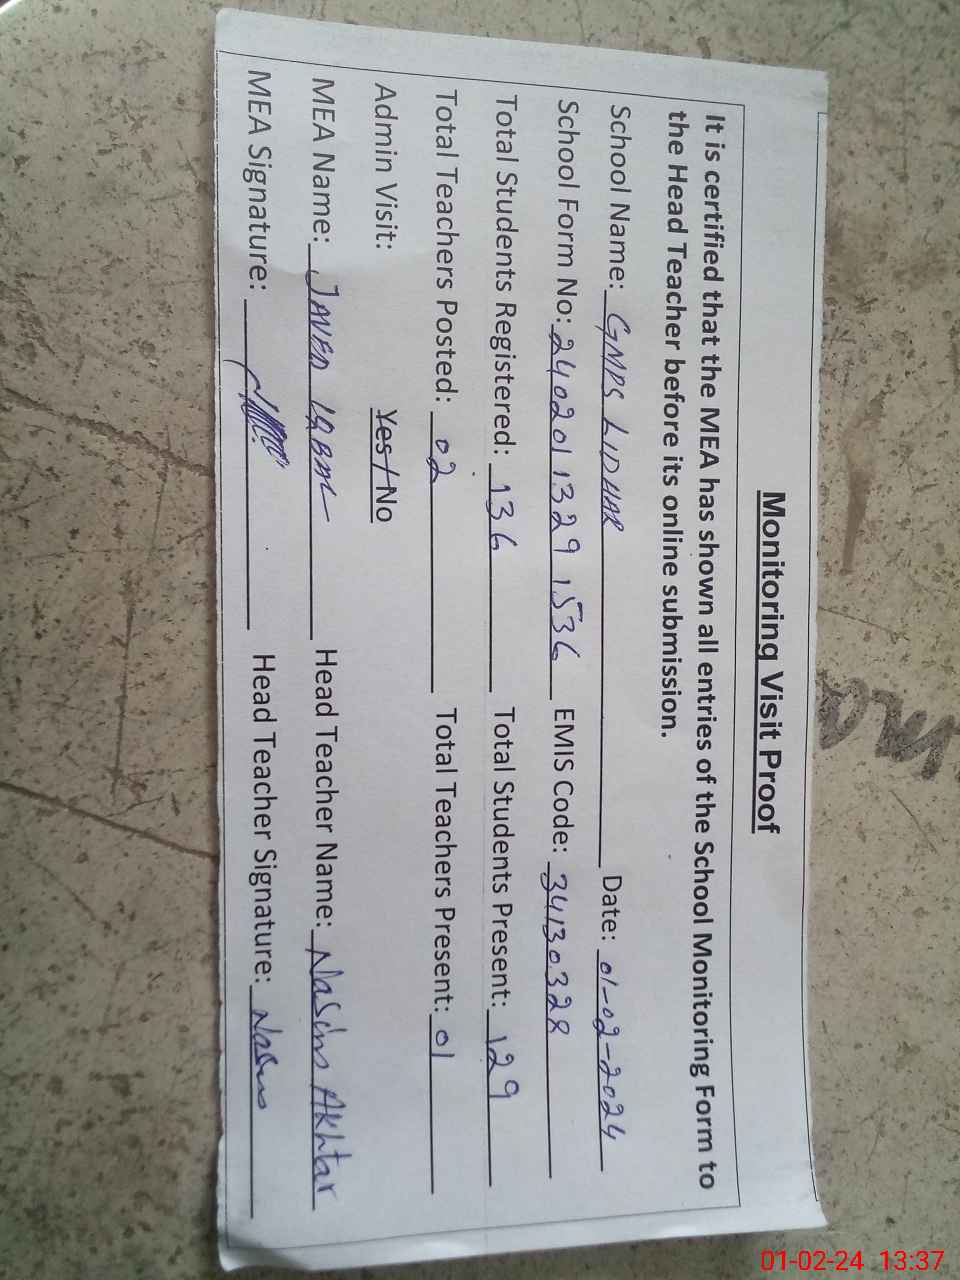 Monitoring Visit Proof
It is certified that the MEA has shown all entries of the School Monitoring Form to
the Head Teacher before its online submission.
School Name: GMPS LIDHAR Date: 01-02-2024
School Form No: 240201 1329 1536 EMIS Code: 34130328
Total Students Registered: 136 Total Students Present: 129
Total Teachers Posted: 02 Total Teachers Present: 01
Admin Visit: Yes/No
MEA Name: JAVED IQBAL Head Teacher Name: Nasim Akhtar
MEA Signature: Head Teacher Signature: Nasim
01-02-24 13:37